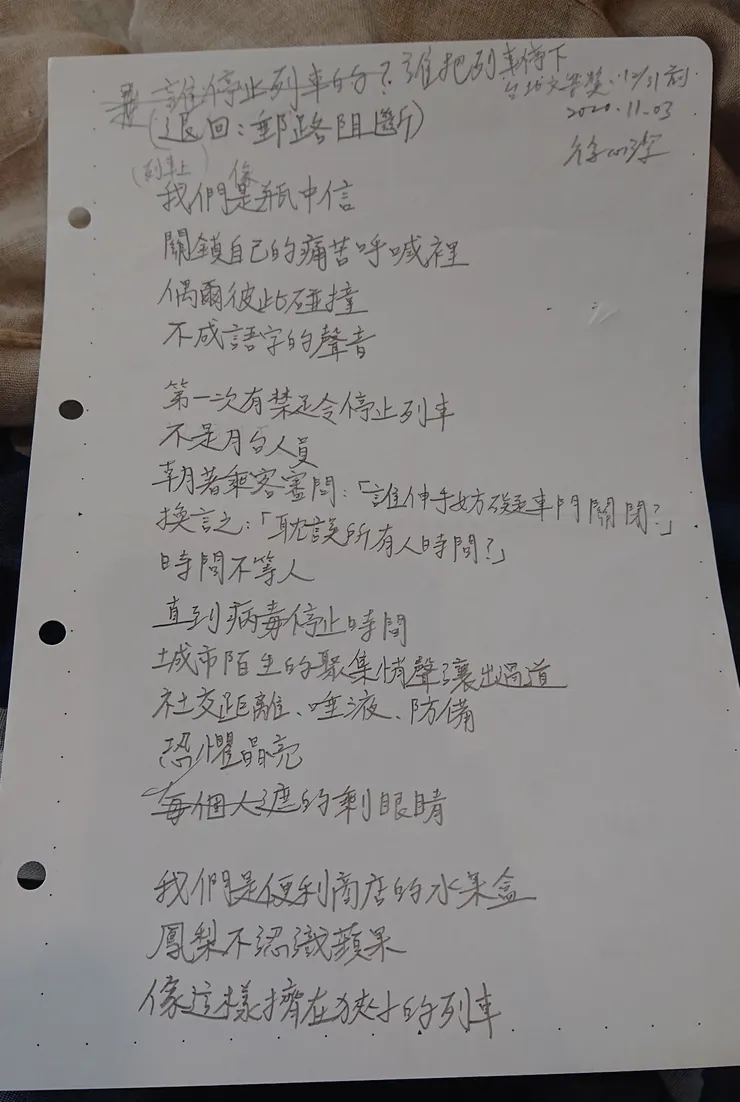 是誰停止列車的？誰把列車停下
台北文學獎．12/31前
2020.11.03
(退回：郵路阻斷)
徐
(列車上) 像
我們是瓶中信
關鎖自己的痛苦呼喊裡
偶爾彼此碰撞
不成語字的聲音
第一次有禁足令停止列車
不是月台人員
朝著乘客審問：「誰伸手妨礙車門關閉？」
換言之：「耽誤所有人時間？」
時間不等人
直到病毒停止時間
城市陌生的聚集悄聲讓出過道
社交距離、唾液、防備
恐懼晶亮
每個人遮的剩眼睛
我們是便利商店的水果盒
鳳梨不認識蘋果
像這樣擠在狹小的列車